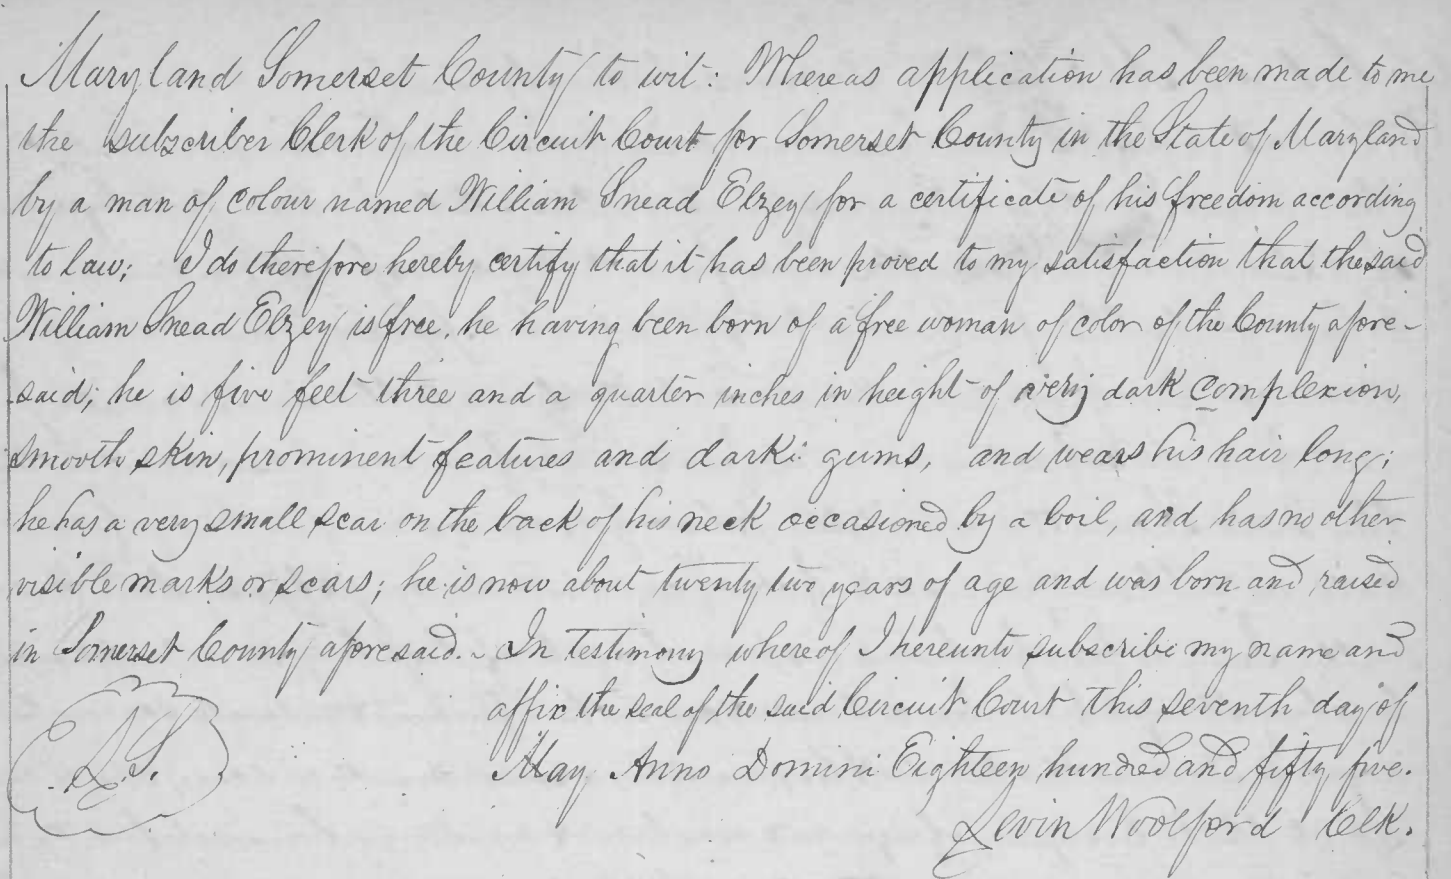 Maryland Somerset County to wit: Whereas application has been made to me
the subscriber Clerk of the Circuit Court for Somerset County in the State of Maryland
by a man of colour named William Snead Elzey for a certificate of his freedom according
to law; I do therefore hereby certify that it has been proved to my satisfaction that the said
William Snead Elzey is free, he having been born of a free woman of color of the County afore-
said; he is five feet three and a quarter inches in height of very dark complexion,
smooth skin, prominent features and dark gums, and wears his hair long;
he has a very small scar on the back of his neck occasioned by a boil, and has no other
visible marks or scars; he is now about twenty two years of age and was born and raised
in Somerset County aforesaid. - In testimony whereof I hereunto subscribe my name and
affix the seal of the said Circuit Court this seventh day of
L.S. May Anno Domini Eighteen hundred and fifty five.
Levin Woolford Clk.